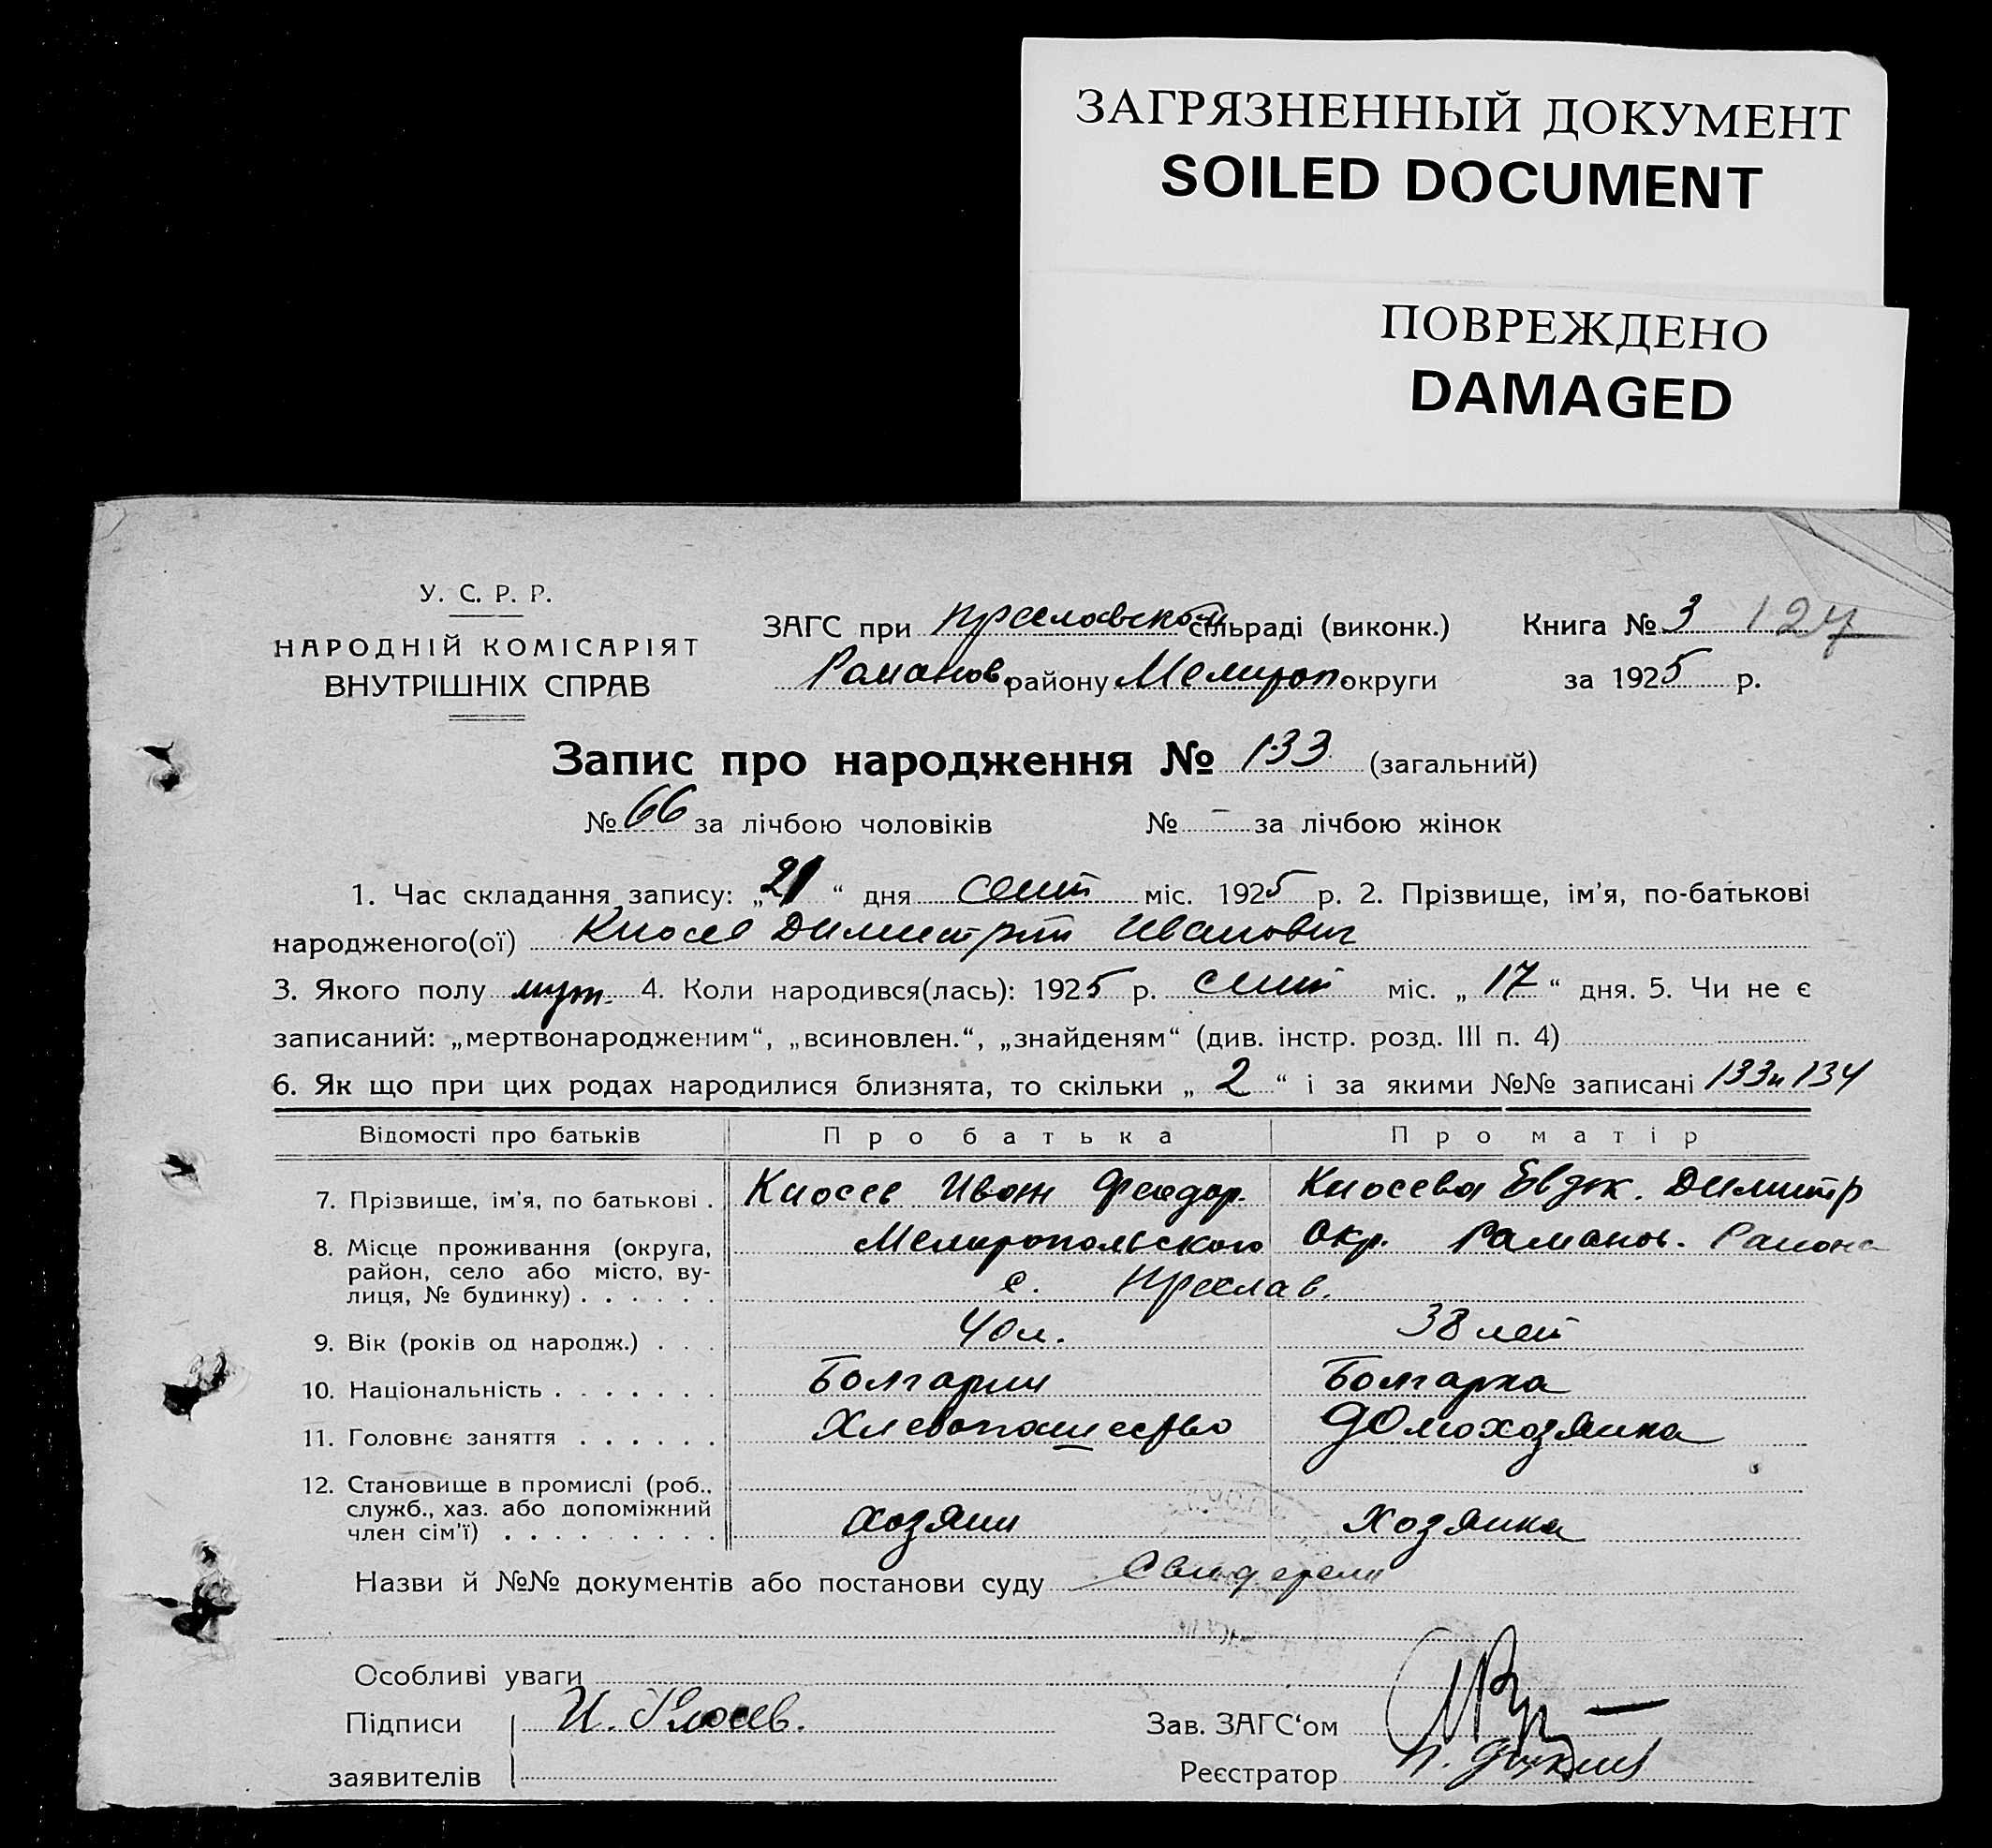 ЗАГРЯЗНЕННЫЙ ДОКУМЕНТ
SOILED DOCUMENT
ПОВРЕЖДЕНО
DAMAGED
У. С. Р. Р.
НАРОДНІЙ КОМІСАРІЯТ
ВНУТРІШНІХ СПРАВ
ЗАГС при Преславской сільраді (виконк.)
Романов. району Мелитоп. округи
Книга № 3 127
за 1925 р.
Запис про народження № 133 (загальний)
№ 66 за лічбою чоловіків № - за лічбою жінок
1. Час складання запису: „21“ дня сент міс. 1925 р. 2. Прізвище, ім'я, по-батькові
народженого(ої) Киосев Димитрий Иванович
3. Якого полу муж. 4. Коли народився(лась): 1925 р. сент міс. „17“ дня. 5. Чи не є
записаний: „мертвонародженим“, „всиновлен.“, „знайденям“ (див. інстр. розд. III п. 4)
6. Як що при цих родах народилися близнята, то скільки „2“ і за якими №№ записані 133 и 134
Відомості про батьків Про батька Про матір
7. Прізвище, ім'я, по батькові . Киосев Иван Феодор. Киосева Евдок. Димитр
8. Місце проживання (округа, Мелитопольского Окр. Романов. Района
район, село або місто, ву-
лиця, № будинку) . . . . . . с. Преслав.
9. Вік (років од народж.) . . . 40 л. 38 лет
10. Національність . . . . . . . Болгарин Болгарка
11. Головнє заняття . . . . . . Хлебопашество Домохозяйка
12. Становище в промислі (роб.,
служб., хаз. або допоміжний
член сім'ї) . . . . . . . . . хозяин Хозяйка
Назви й №№ документів або постанови суду
Особливі уваги
Підписи И. Киосев. Зав. ЗАГС‘ом
заявителів Реєстратор